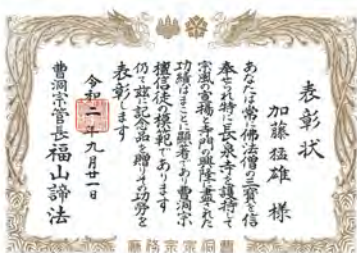 表彰状
加藤猛雄 様
あなたは常に佛法僧の三寳を信
奉せられ特に長泉寺を護持して
宗風の宣揚と寺門の興隆に盡された
功績はまことに顕著であり曹洞宗
檀信徒の模範であります
仍て茲に記念品を贈りその功労を
表彰します
令和二年九月廿一日
曹洞宗管長 福山諦法
曹洞宗宗務廳